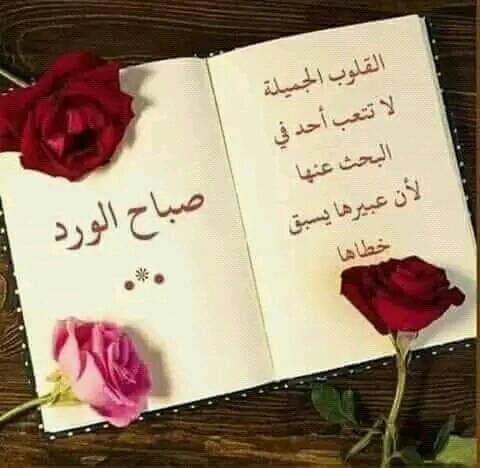 القلوب الجميلة
لا تتعب أحد في
البحث عنها
لأن عبيرها يسبق
خطاها
صباح الورد